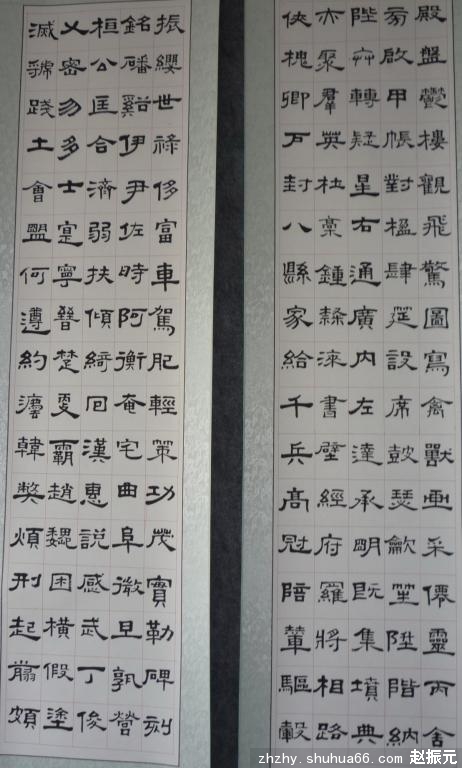 殿盤鬱樓觀飛驚圖寫禽獸畫采僊靈丙舍
㫄啟甲帳對楹肆筵設席鼓瑟龡笙陞階納
陛弁轉疑星右通廣內左達承明既集墳典
亦聚羣英杜稾鍾隸漆書壁經府羅將相路
俠槐卿戶封八縣家給千兵高冠陪輦驅轂
振纓世祿侈富車駕肥輕策功茂實勒碑刻
銘磻谿伊尹佐時阿衡奄宅曲阜微旦孰營
桓公匡合濟弱扶傾綺回漢惠說感武丁俊
乂密勿多士寔寧晉楚更霸趙魏困橫假塗
滅虢踐土會盟何遵約灋韓弊煩刑起翦頗
zhzhy.shuhua66.com 赵振元